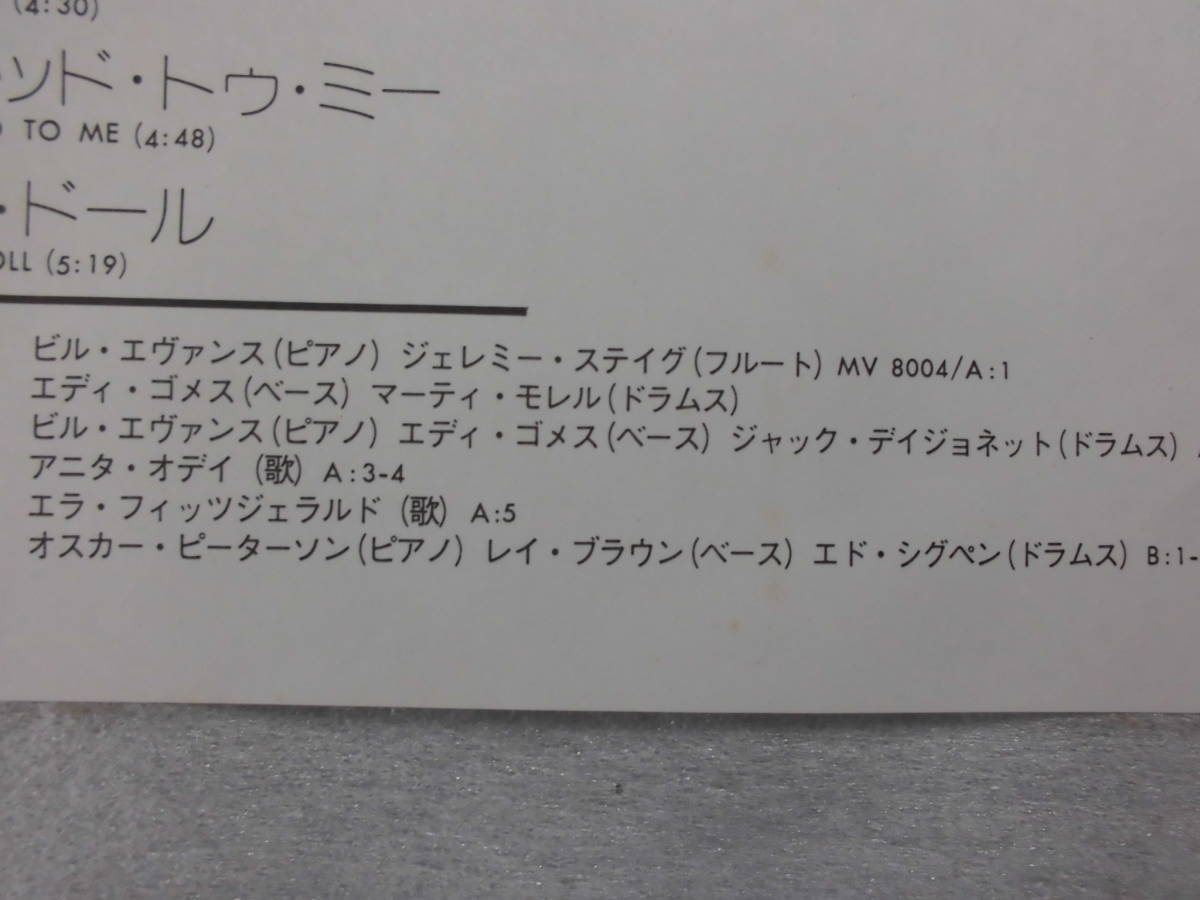 (4:30)
ソド・トゥ・ミー
TO ME (4:48)
・ドール
OLL (5:19)
ビル・エヴァンス(ピアノ) ジェレミー・ステイグ(フルート) MV 8004/A:1
エディ・ゴメス(ベース) マーティ・モレル(ドラムス)
ビル・エヴァンス(ピアノ) エディ・ゴメス(ベース) ジャック・デイジョネット(ドラムス)
アニタ・オデイ (歌) A:3-4
エラ・フィッツジェラルド (歌) A:5
オスカー・ピーターソン(ピアノ) レイ・ブラウン(ベース) エド・シグペン(ドラムス) B:1-